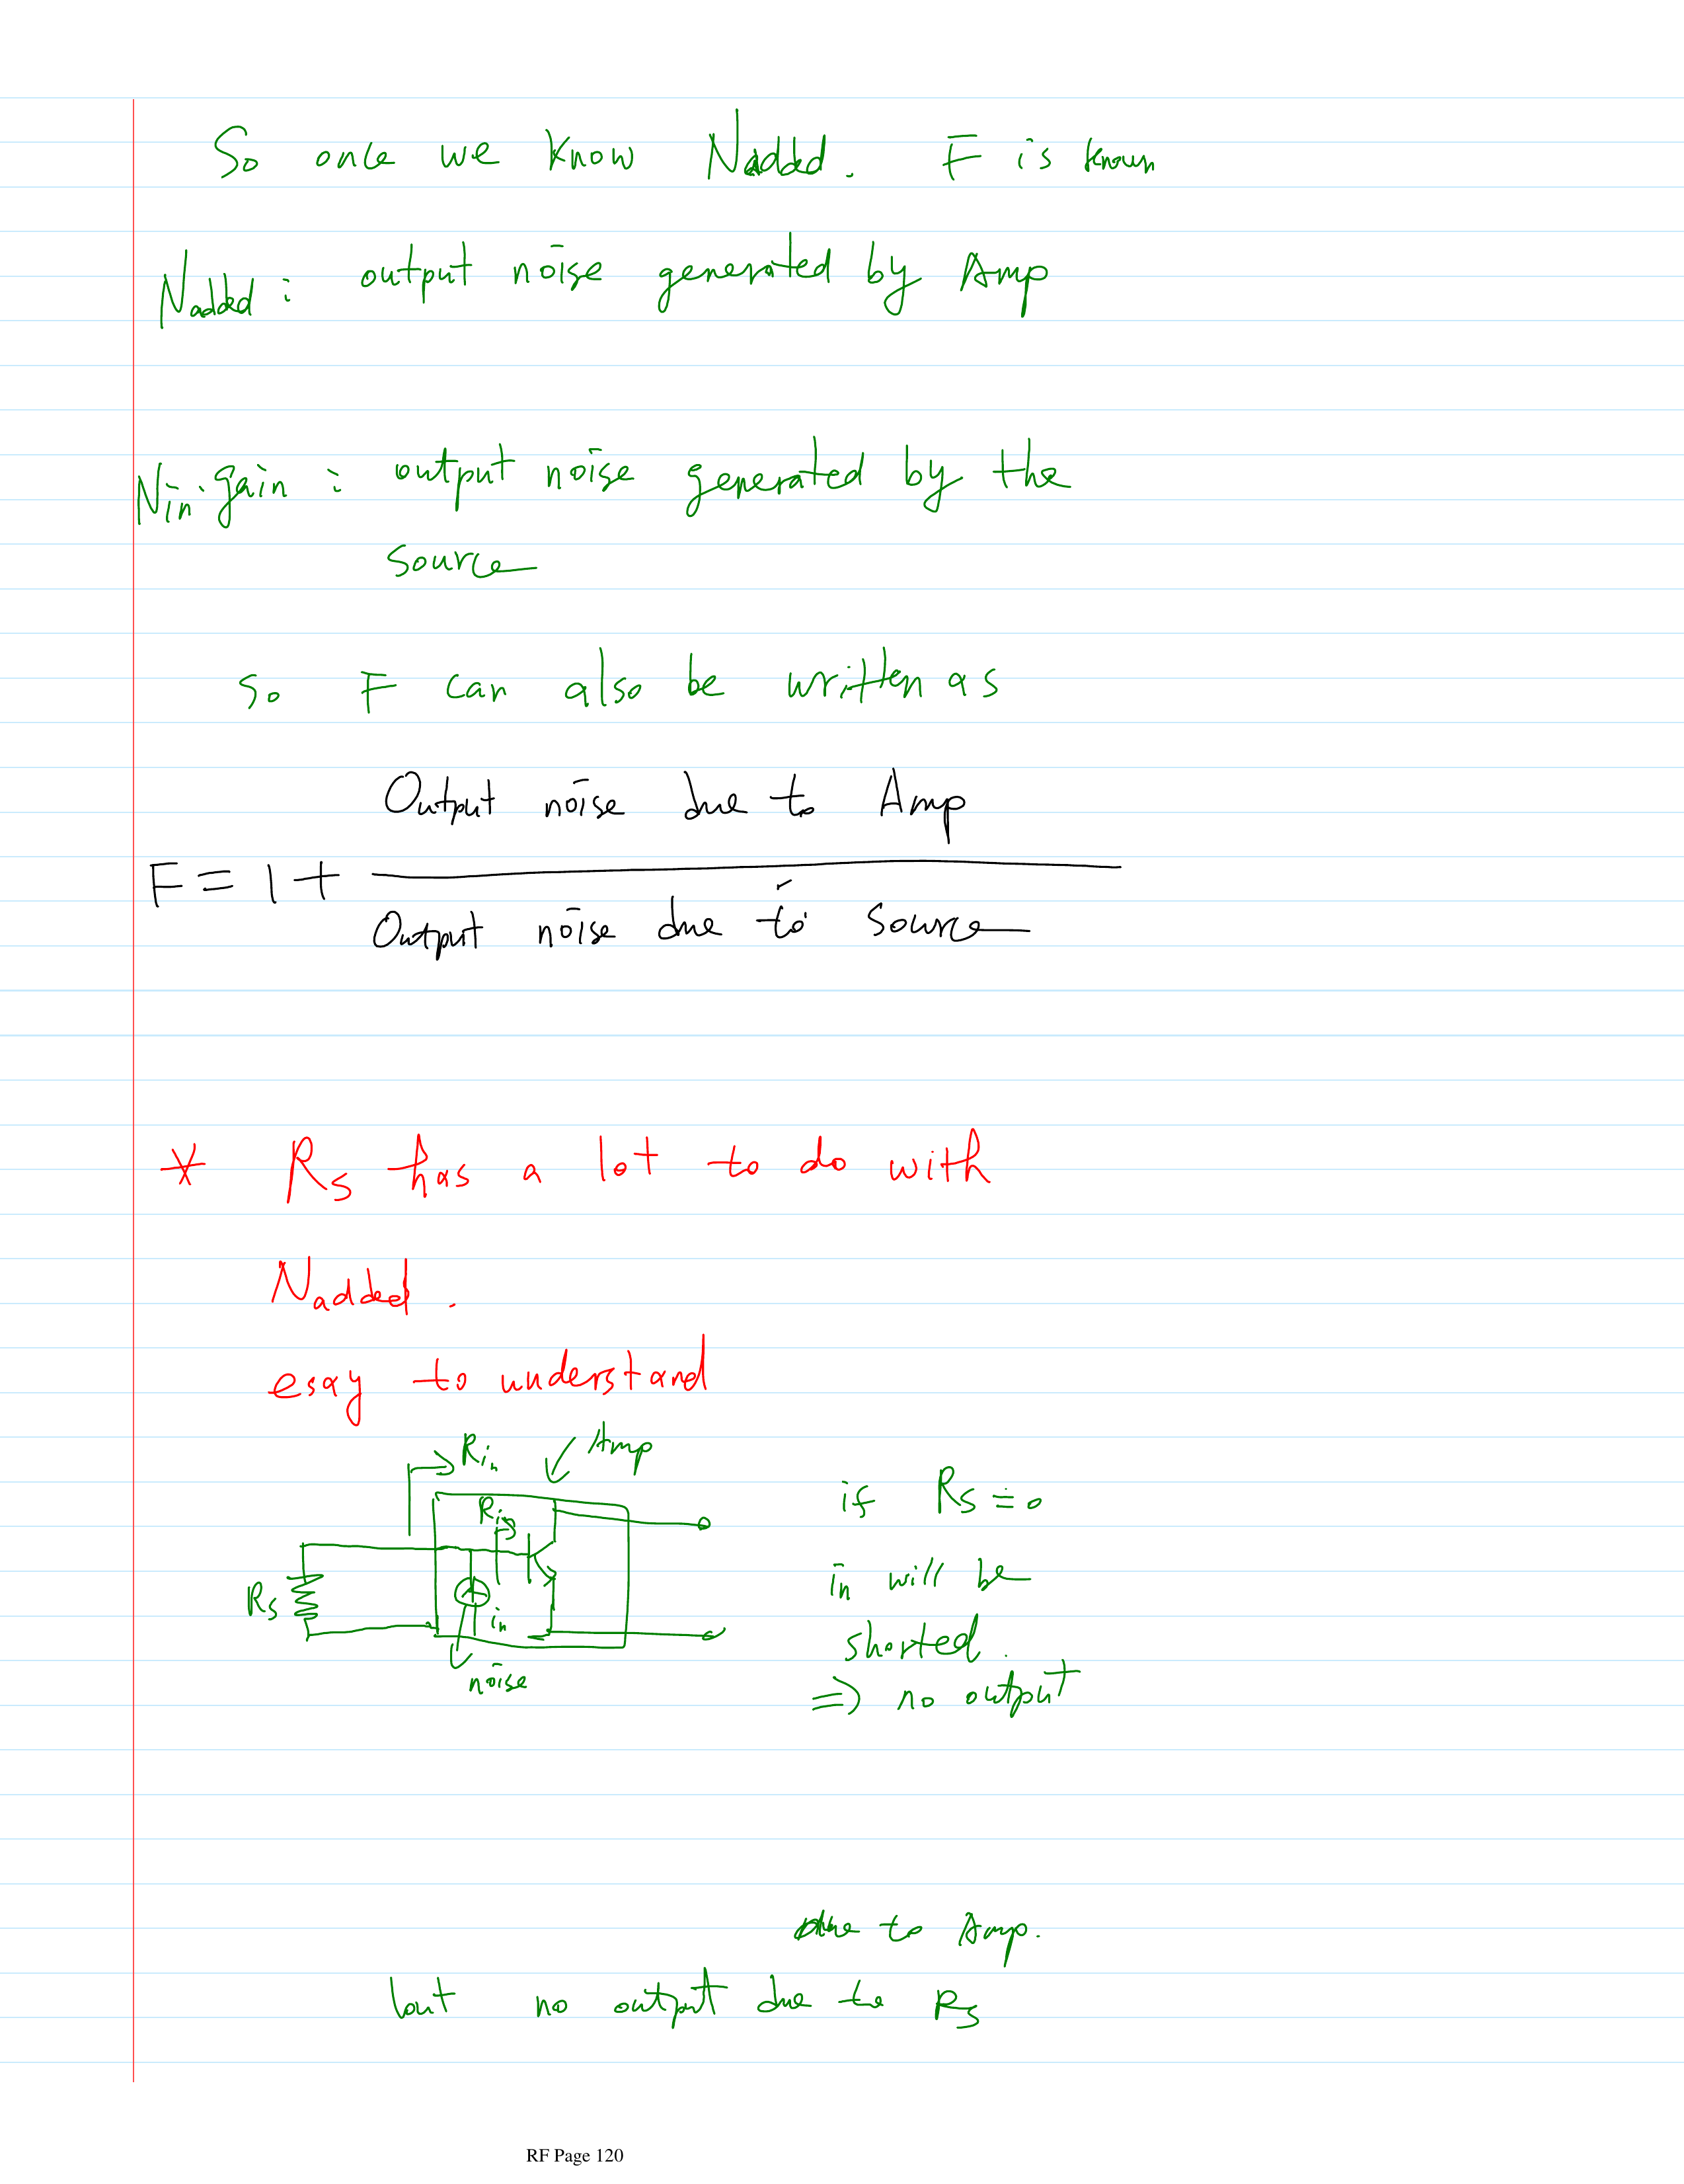 So once we know Nadded. F is known
Nadded: output noise generated by Amp
Nin·gain: output noise generated by the
source
So F can also be written as
Output noise due to Amp
F = 1 +
Output noise due to source
* Rs has a lot to do with
Nadded.
esay to understand
Rin
Amp
Rin
Rs
in
noise
if Rs = 0
in will be
shorted.
⇒ no output
due to Amp.
but no output due to Rs
RF Page 120